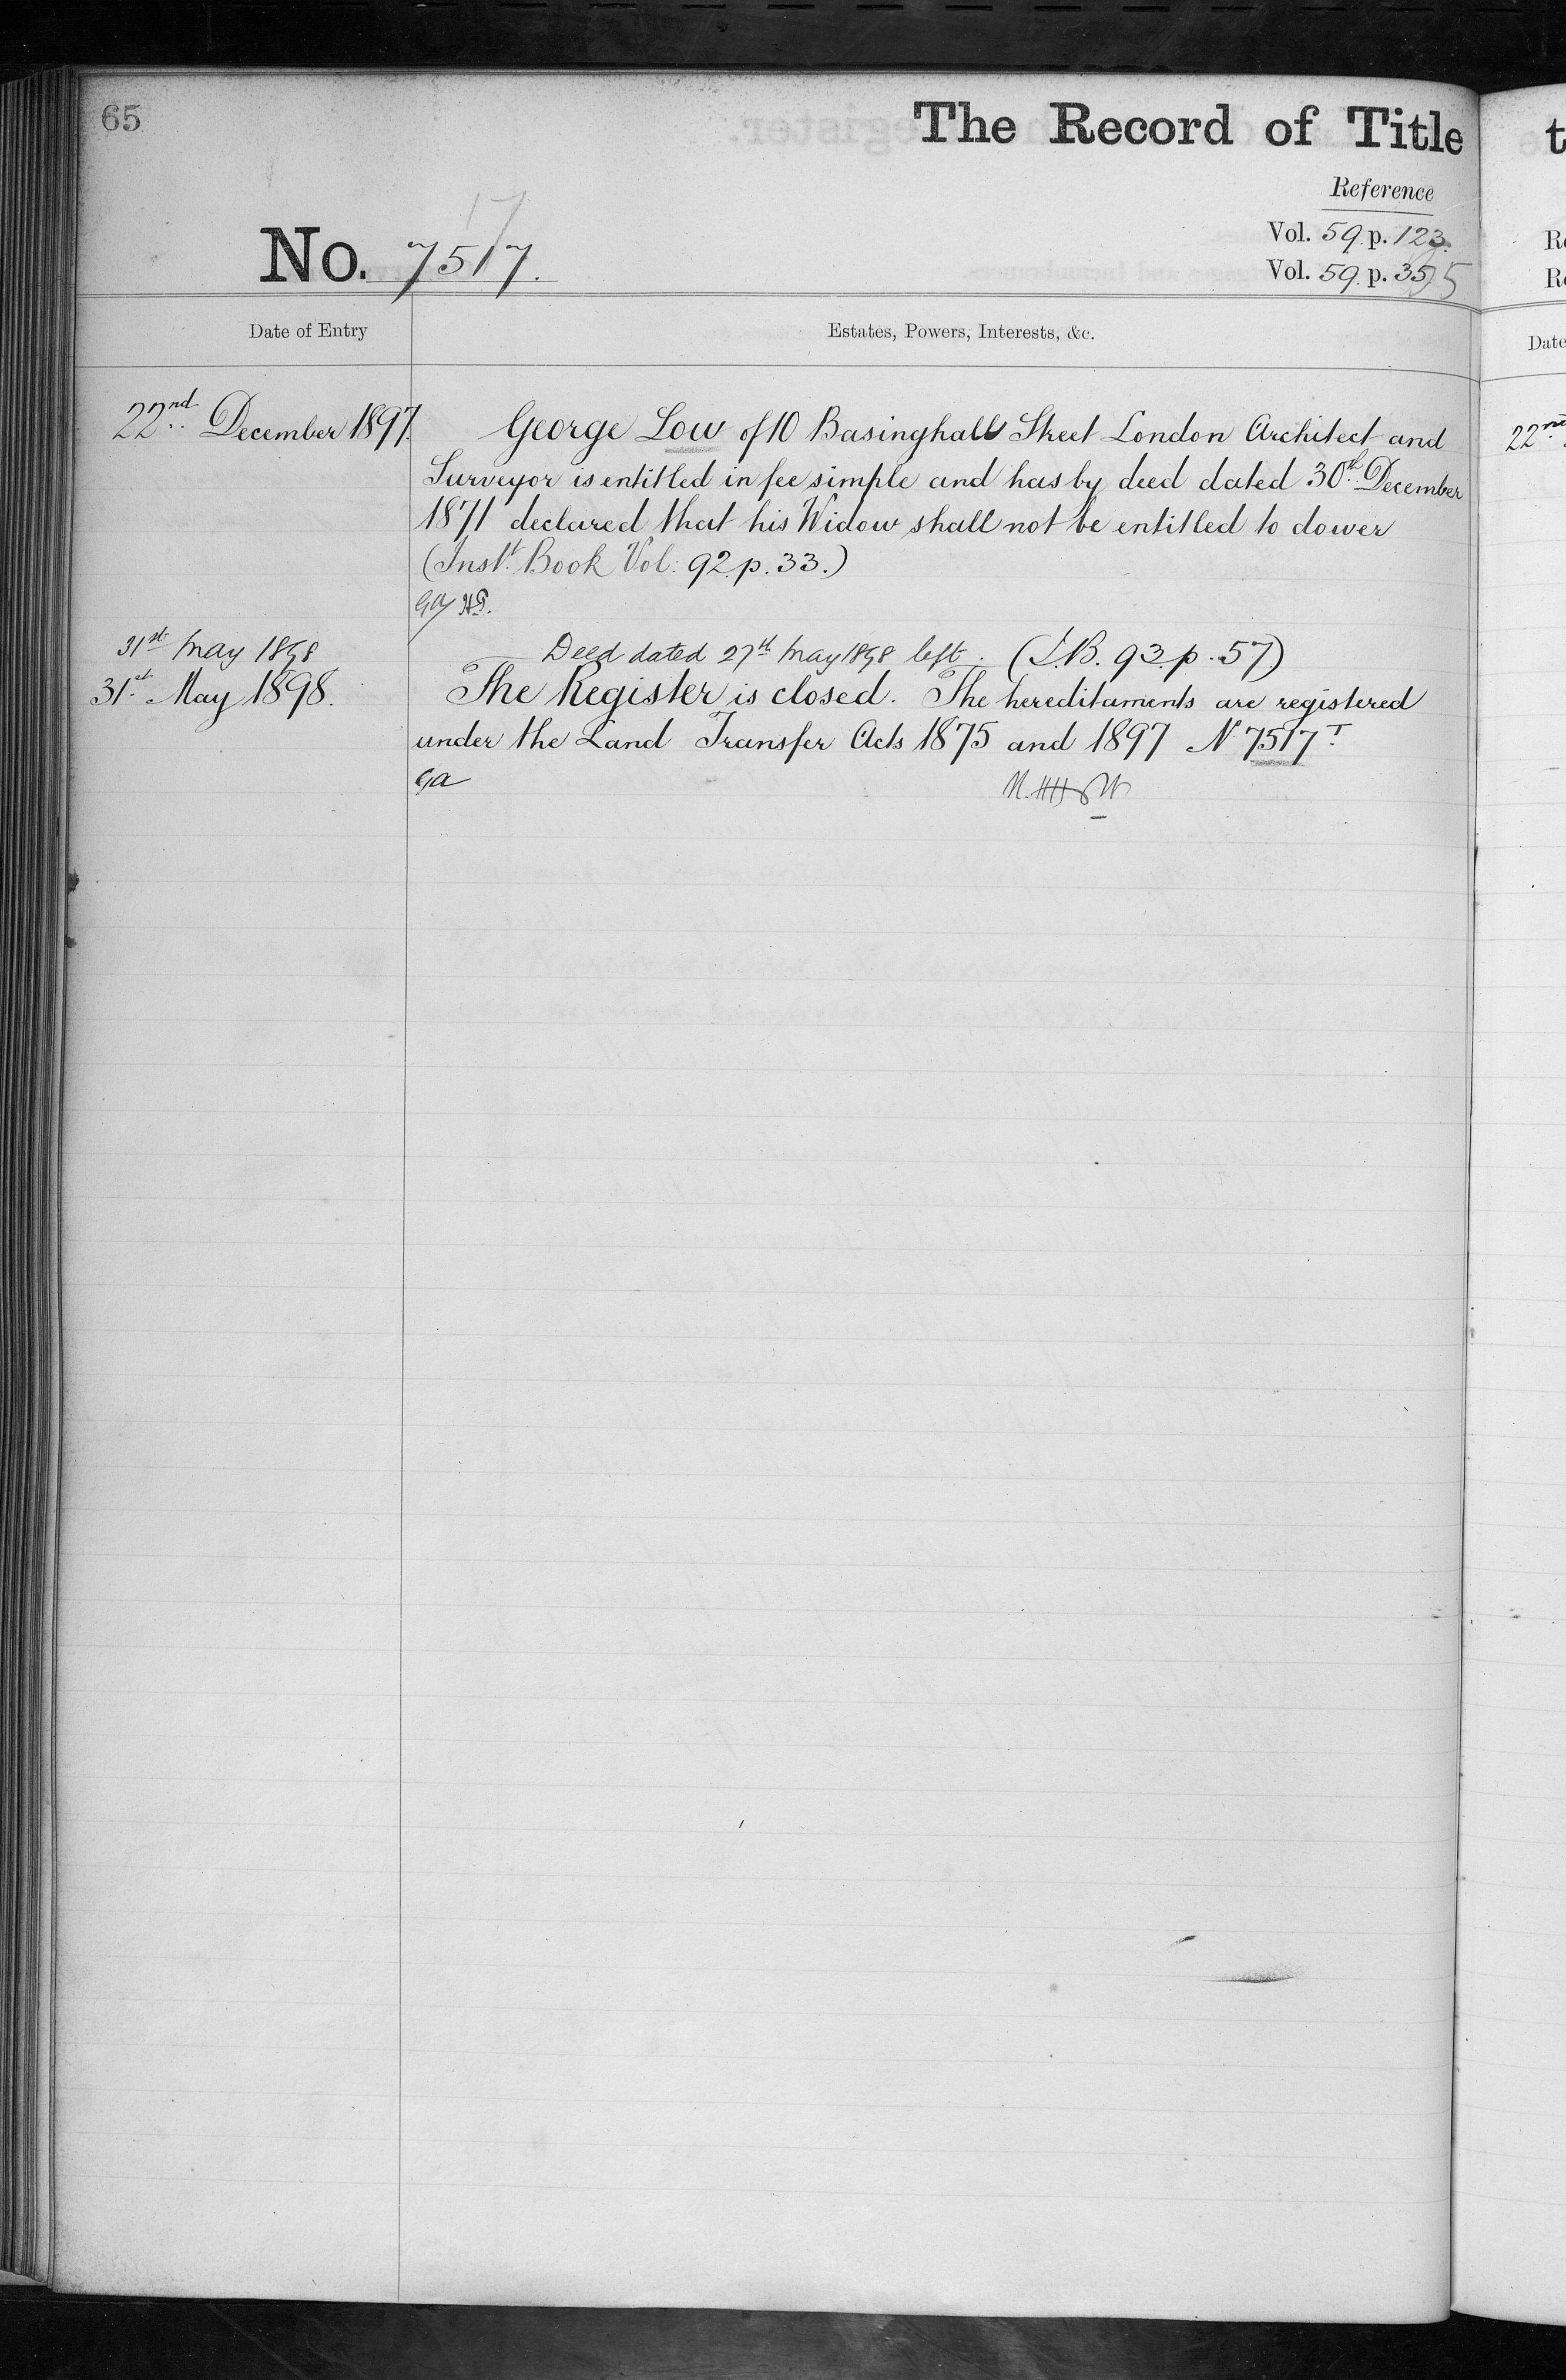 65
The Record of Title
Reference
17
No. 7517.
Vol. 59. p. 123.
Vol. 59. p. 355
Date of Entry
Estates, Powers, Interests, &c.
22nd December 1897.
George Low of 10 Basinghall Street London Architect and
Surveyor is entitled in fee simple and has by deed dated 30th December
1871 declared that his Widow shall not be entitled to dower
(Inst. Book Vol: 92. p. 33.)
31st May 1898
Deed dated 27th May 1898 left. (I.B. 93. p. 57)
31st May 1898.
The Register is closed. The hereditaments are registered
under the Land Transfer Acts 1875 and 1897 No 7517 T.
Ga
t
Date
22nd